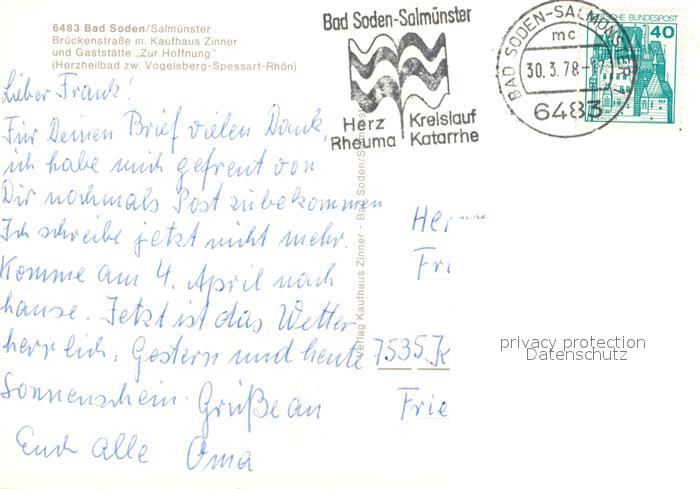 6483 Bad Soden/Salmünster
Brückenstraße m. Kaufhaus Zinner
und Gaststätte „Zur Hoffnung"
(Herzheilbad zw. Vogelsberg-Spessart-Rhön)
Bad Soden-Salmünster
Herz Kreislauf
Rheuma Katarrhe
BAD SODEN-SALMÜNSTER
mc
30.3.78-17
6483
DEUTSCHE BUNDESPOST
40
Lieber Frank!
Für Deinen Brief vielen Dank,
ich habe mich gefreut von
Dir nochmals Post zu bekommen
Ich schreibe jetzt nicht mehr.
Komme am 4. April nach
hause. Jetzt ist das Wetter
herrlich. Gestern und heute
Sonnenschein. Grüße an
Euch alle Oma
Verlag Kaufhaus Zinner - Bad Soden/Salmünster
Herrn
Fri
7535 K
Frie
privacy protection
Datenschutz